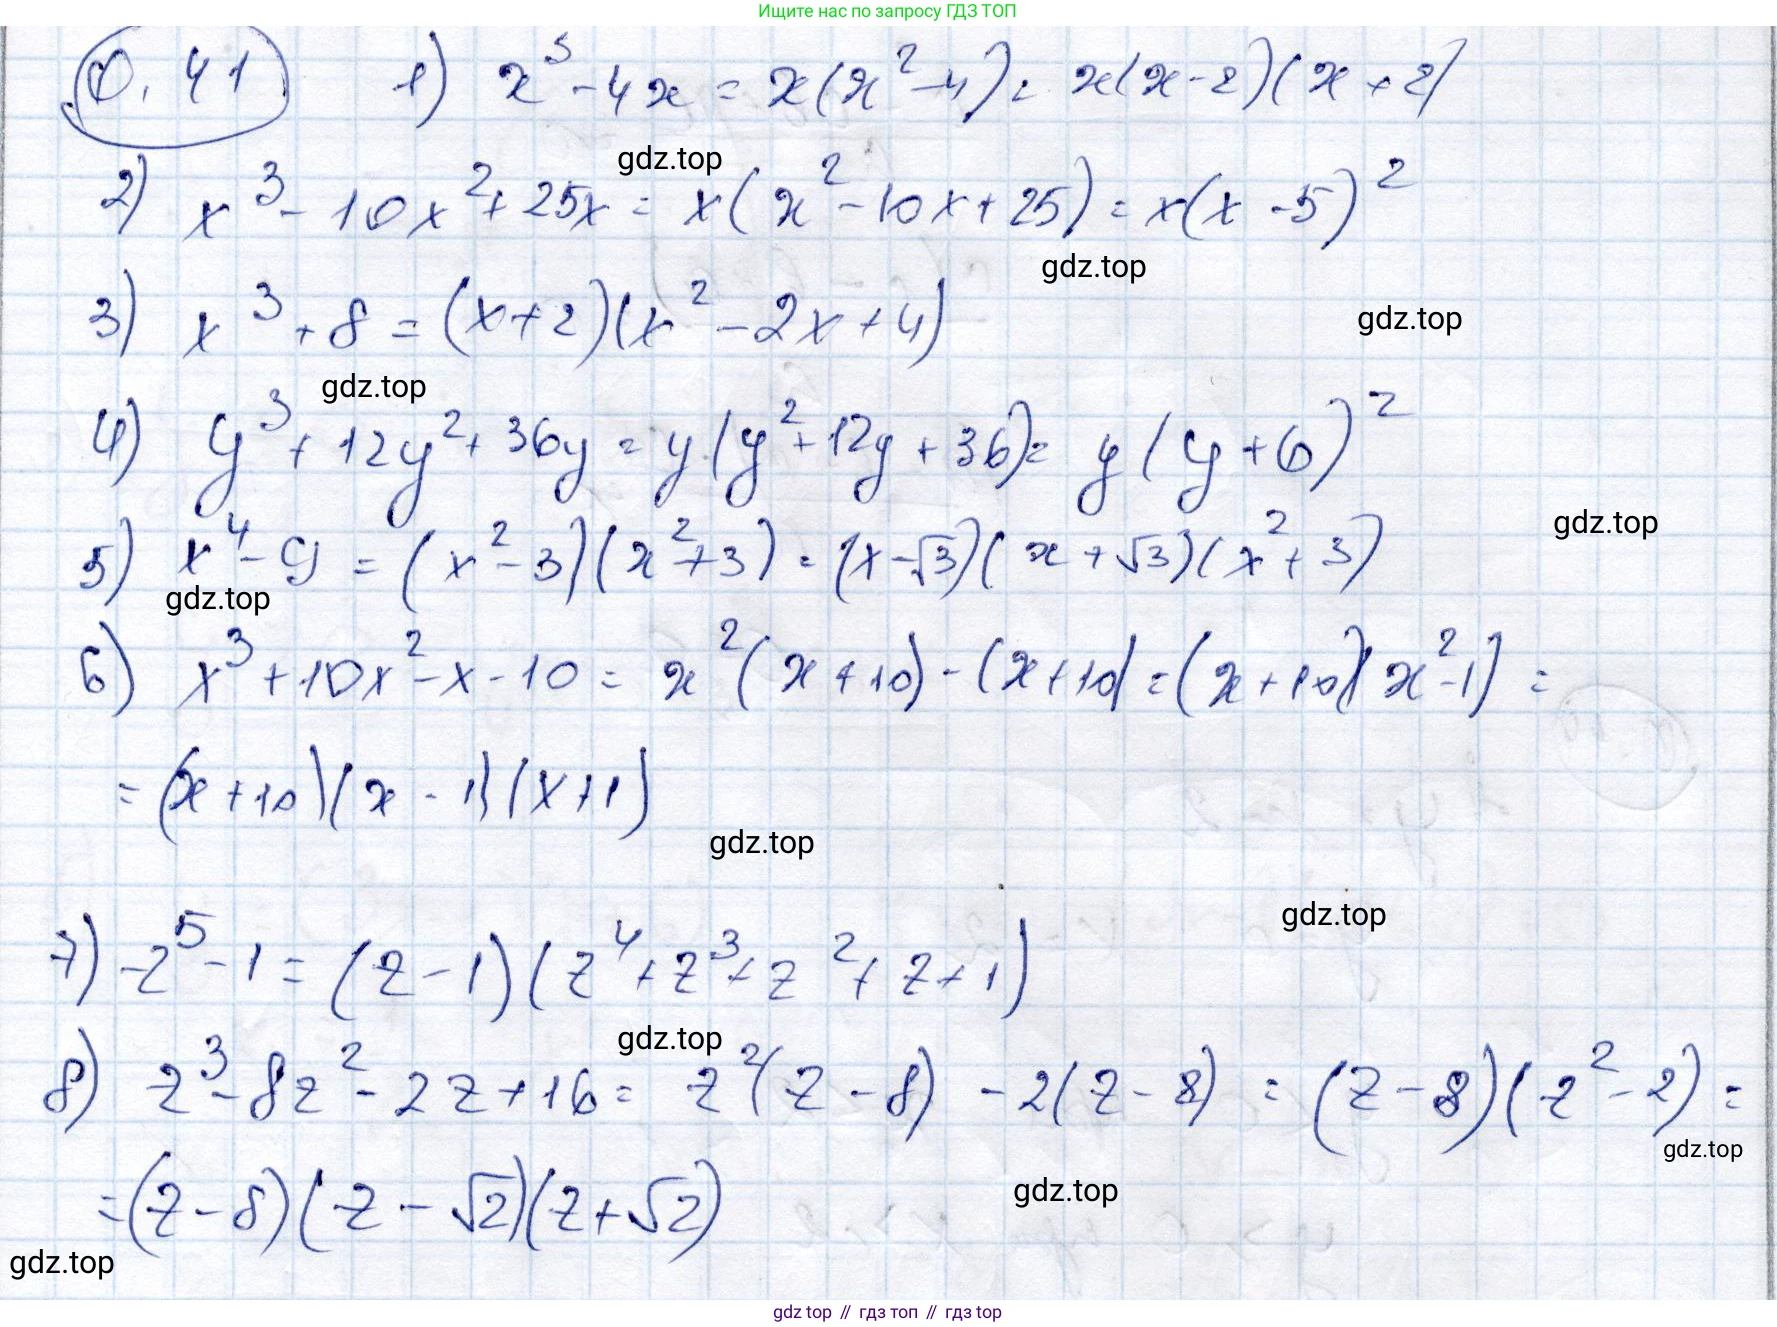 Ищите нас по запросу ГДЗ ТОП
0.41 1) x³ - 4x = x(x² - 4) = x(x - 2)(x + 2)
gdz.top
2) x³ - 10x² + 25x = x(x² - 10x + 25) = x(x - 5)²
gdz.top
3) x³ + 8 = (x + 2)(x² - 2x + 4)
gdz.top
gdz.top
4) y³ + 12y² + 36y = y(y² + 12y + 36) = y(y + 6)²
gdz.top
5) x⁴ - 9 = (x² - 3)(x² + 3) = (x - √3)(x + √3)(x² + 3)
gdz.top
6) x³ + 10x² - x - 10 = x²(x + 10) - (x + 10) = (x + 10)(x² - 1) =
= (x + 10)(x - 1)(x + 1)
gdz.top
gdz.top
7) z⁵ - 1 = (z - 1)(z⁴ + z³ + z² + z + 1)
gdz.top
8) z³ - 8z² - 2z + 16 = z²(z - 8) - 2(z - 8) = (z - 8)(z² - 2) =
gdz.top
= (z - 8)(z - √2)(z + √2)
gdz.top
gdz.top
gdz top // гдз топ // гдз top